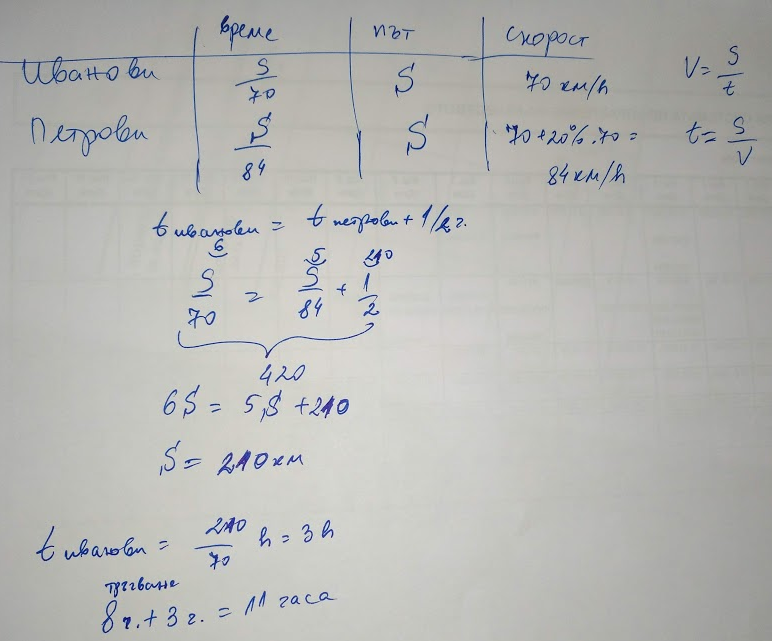 време път скорост
Иванови S/70 S 70 км/h V = S/t
Петрови S/84 S 70+20%.70 = t = S/V
84 км/h
t иванови = t петрови + 1/2 г.
6 5 210
S/70 = S/84 + 1/2
420
6S = 5S + 210
S = 210 км
t иванови = 210/70 h = 3 h
тръгване
8 ч. + 3 г. = 11 часа